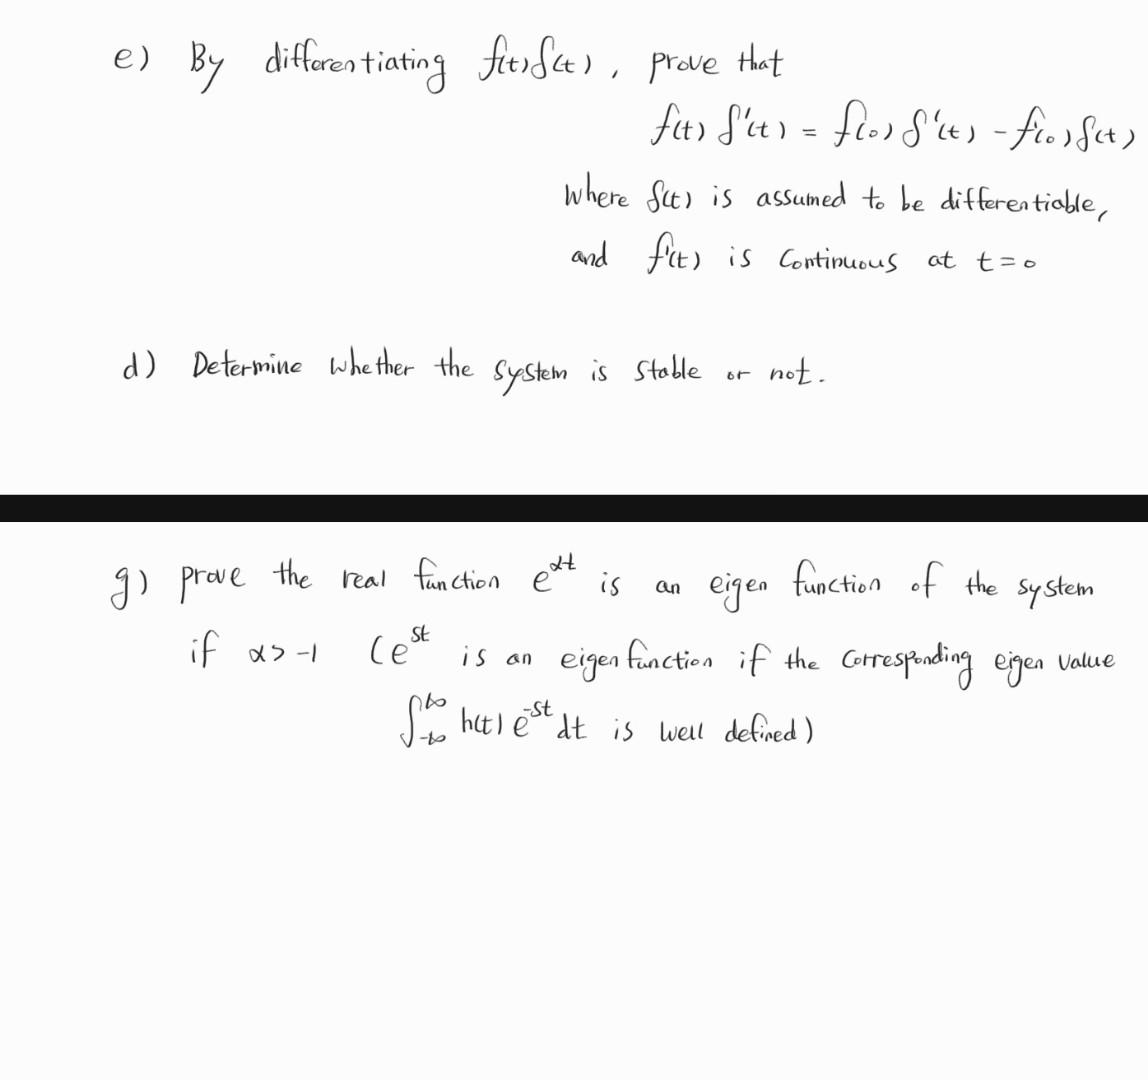 e) By differentiating f(t)δ(t), prove that
f(t) δ'(t) = f(0) δ'(t) - f'(0) δ(t)
where δ(t) is assumed to be differentiable,
and f'(t) is continuous at t=0
d) Determine whether the system is stable or not.
g) prove the real function e^αt is an eigen function of the system
if α>-1 (e^st is an eigen function if the corresponding eigen value
∫_-∞^∞ h(t) e^-st dt is well defined)